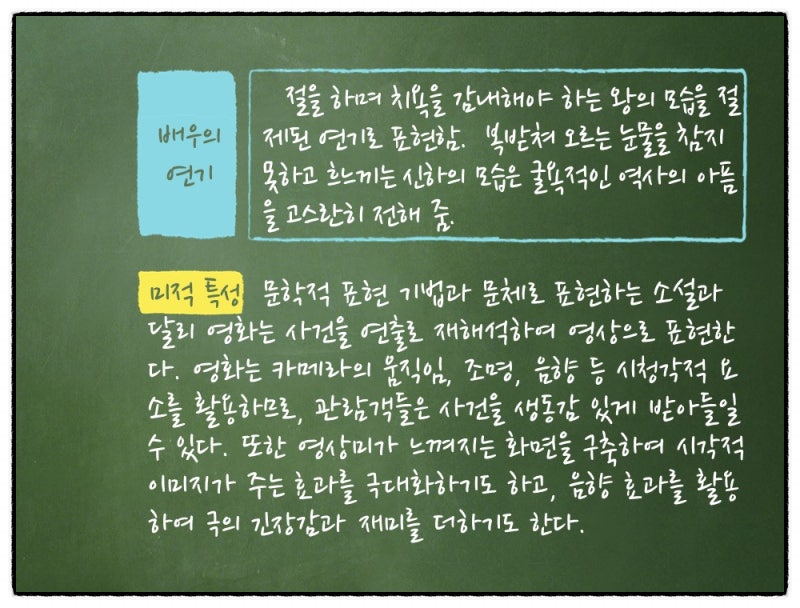 배우의
연기
절을 하며 치욕을 감내해야 하는 왕의 모습을 절
제된 연기로 표현함. 복받쳐 오르는 눈물을 참지
못하고 흐느끼는 신하의 모습은 굴욕적인 역사의 아픔
을 고스란히 전해 줌.
미적 특성 문학적 표현 기법과 문체로 표현하는 소설과
달리 영화는 사건을 연출로 재해석하여 영상으로 표현한
다. 영화는 카메라의 움직임, 조명, 음향 등 시청각적 요
소를 활용하므로, 관람객들은 사건을 생동감 있게 받아들일
수 있다. 또한 영상미가 느껴지는 화면을 구축하여 시각적
이미지가 주는 효과를 극대화하기도 하고, 음향 효과를 활용
하여 극의 긴장감과 재미를 더하기도 한다.